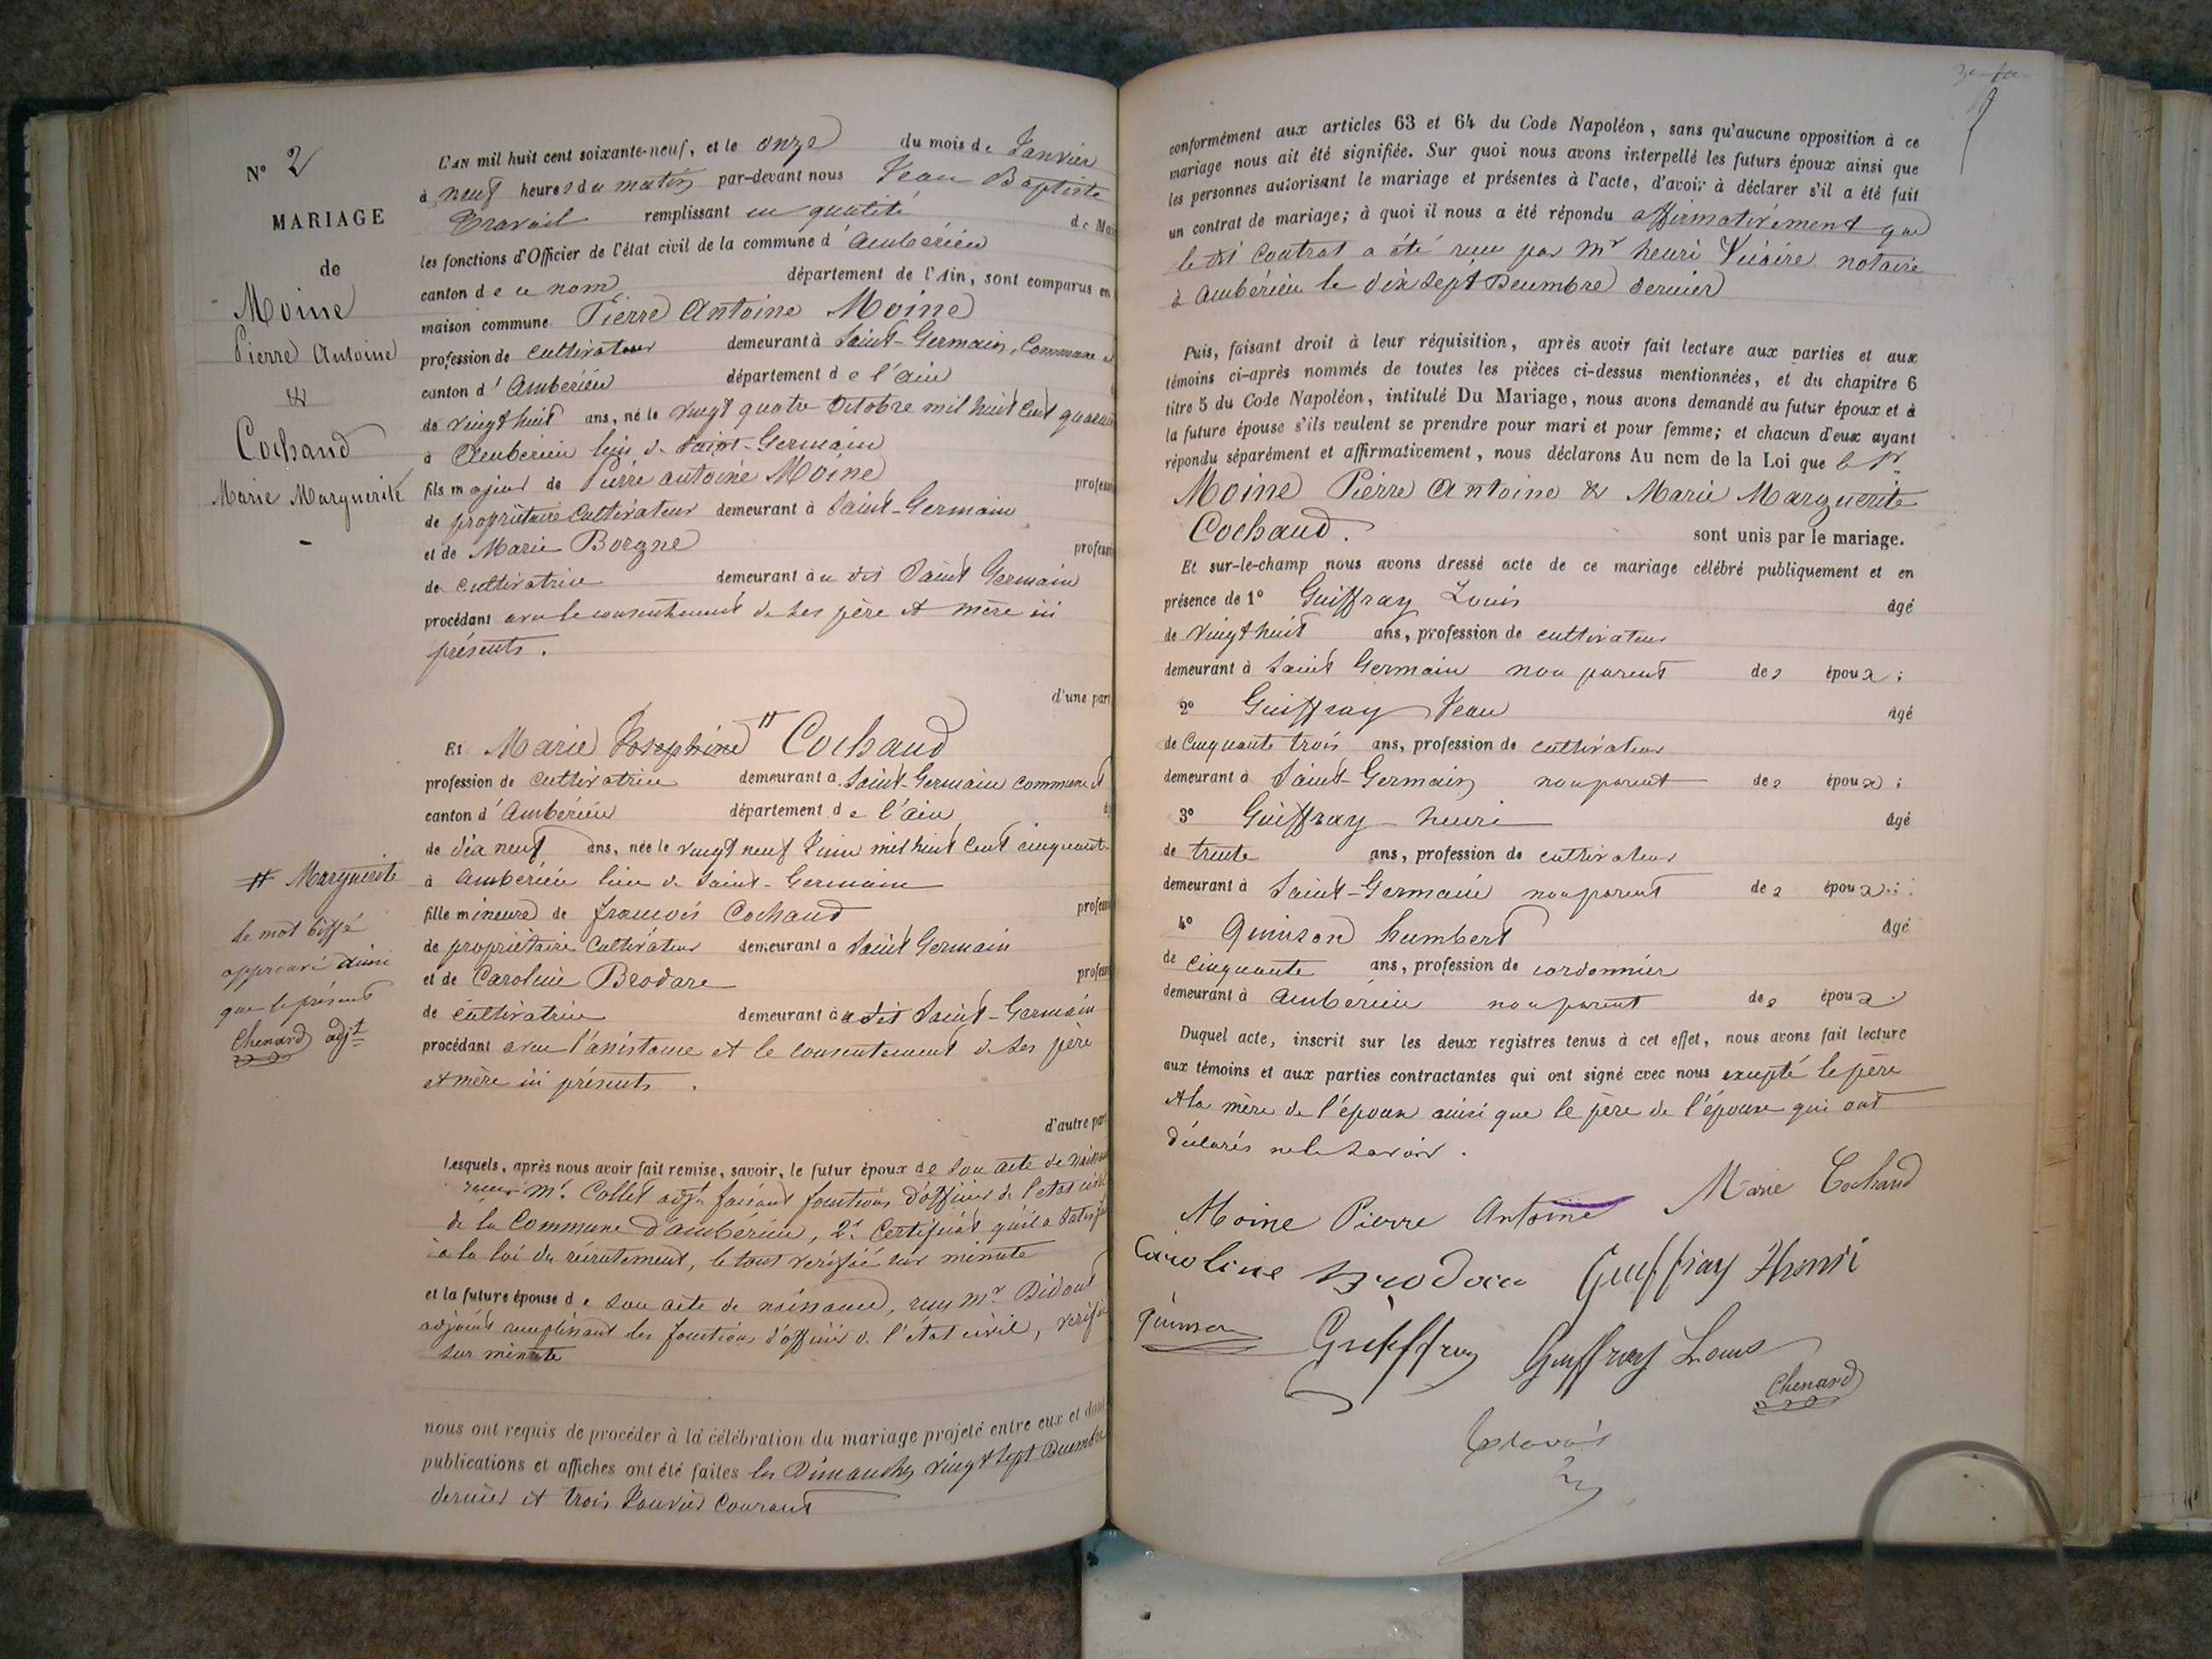 N° 2
MARIAGE
de
Moine
Pierre Antoine
&
Cochaud
Marie Marguerite
# Marguerite
le mot biffé
approuvé ainsi
que le présent
Chenard adjt
L'AN mil huit cent soixante-neuf, et le onze du mois de Janvier
à neuf heures du matin par-devant nous Jean Baptiste
Travail remplissant en qualité de Mai
les fonctions d'Officier de l'état civil de la commune d'Ambérieu
canton de ce nom département de l'Ain, sont comparus en
maison commune Pierre Antoine Moine
profession de cultivateur demeurant à Saint-Germain, Commune et
canton d'Ambérieu département de l'ain
de vingt huit ans, né le vingt quatre Octobre mil huit cent quarante
à Ambérieu lieu de Saint-Germain
fils majeur de Pierre antoine Moine profess
de propriétaire Cultivateur demeurant à Saint-Germain
et de Marie Borgne profess
de cultivatrice demeurant à u dit Saint Germain
procédant avec le consentement de ses père et mère ici
présents.
d'une part
Et Marie Josephine # Cochaud
profession de cultivatrice demeurant à Saint-Germain commune et
canton d'Ambérieu département de l'ain
de dix neuf ans, née le vingt neuf Juin mil huit cent cinquante
à Ambérieu lieu de Saint-Germain
fille mineure de francois Cochaud profess
de propriétaire Cultivateur demeurant à Saint Germain
et de Caroline Brodare profess
de cultivatrice demeurant à u dit Saint-Germain
procédant avec l'assistance et le consentement de ses père
et mère ici présents.
d'autre part
Lesquels, après nous avoir fait remise, savoir, le futur époux de son acte de naissance
Mr. Collet adjt faisant fonctions d'officier de l'etat civil
de la Commune d'ambérieu, 2° Certificat qu'il a satisfait
à la loi du recrutement, le tout vérifié sur minute
et la future épouse de son acte de naissance, reçu Mr. Bidout
adjoint remplissant les fonctions d'officier de l'état civil, vérifié
sur minute
nous ont requis de procéder à la célébration du mariage projeté entre eux et dont
publications et affiches ont été faites les Dimanches vingt sept Decembre
dernier et trois Janvier Courant
conformément aux articles 63 et 64 du Code Napoléon, sans qu'aucune opposition à ce
mariage nous ait été signifiée. Sur quoi nous avons interpellé les futurs époux ainsi que
les personnes autorisant le mariage et présentes à l'acte, d'avoir à déclarer s'il a été fait
un contrat de mariage; à quoi il nous a été répondu affirmativement que
le dit Contrat a été reçu par Mr henri Vicaire notaire
à Ambérieu le dix sept Decembre dernier
Puis, faisant droit à leur réquisition, après avoir fait lecture aux parties et aux
témoins ci-après nommés de toutes les pièces ci-dessus mentionnées, et du chapitre 6
titre 5 du Code Napoléon, intitulé Du Mariage, nous avons demandé au futur époux et à
la future épouse s'ils veulent se prendre pour mari et pour femme; et chacun d'eux ayant
répondu séparément et affirmativement, nous déclarons Au nom de la Loi que le Sr
Moine Pierre Antoine & Marie Marguerite
Cochaud. sont unis par le mariage.
Et sur-le-champ nous avons dressé acte de ce mariage célébré publiquement et en
présence de 1° Guiffray Louis âgé
de vingt huit ans, profession de cultivateur
demeurant à Saint Germain non parent des époux;
2° Guiffray Jean âgé
de Cinquante trois ans, profession de cultivateur
demeurant à Saint-Germain non parent des époux;
3° Guiffray henri âgé
de trente ans, profession de cultivateur
demeurant à Saint-Germain non parent des époux;
4° Quinson humbert âgé
de Cinquante ans, profession de cordonnier
demeurant à Ambérieu non parent des époux.
Duquel acte, inscrit sur les deux registres tenus à cet effet, nous avons fait lecture
aux témoins et aux parties contractantes qui ont signé avec nous excepté le père
et la mère de l'époux ainsi que le père de l'épouse qui ont
déclarés ne le savoir.
Moine Pierre Antoine Marie Cochaud
Caroline Brodare Guiffray Henri
Quinson Guiffray Guiffray Louis
Chenard
Travail